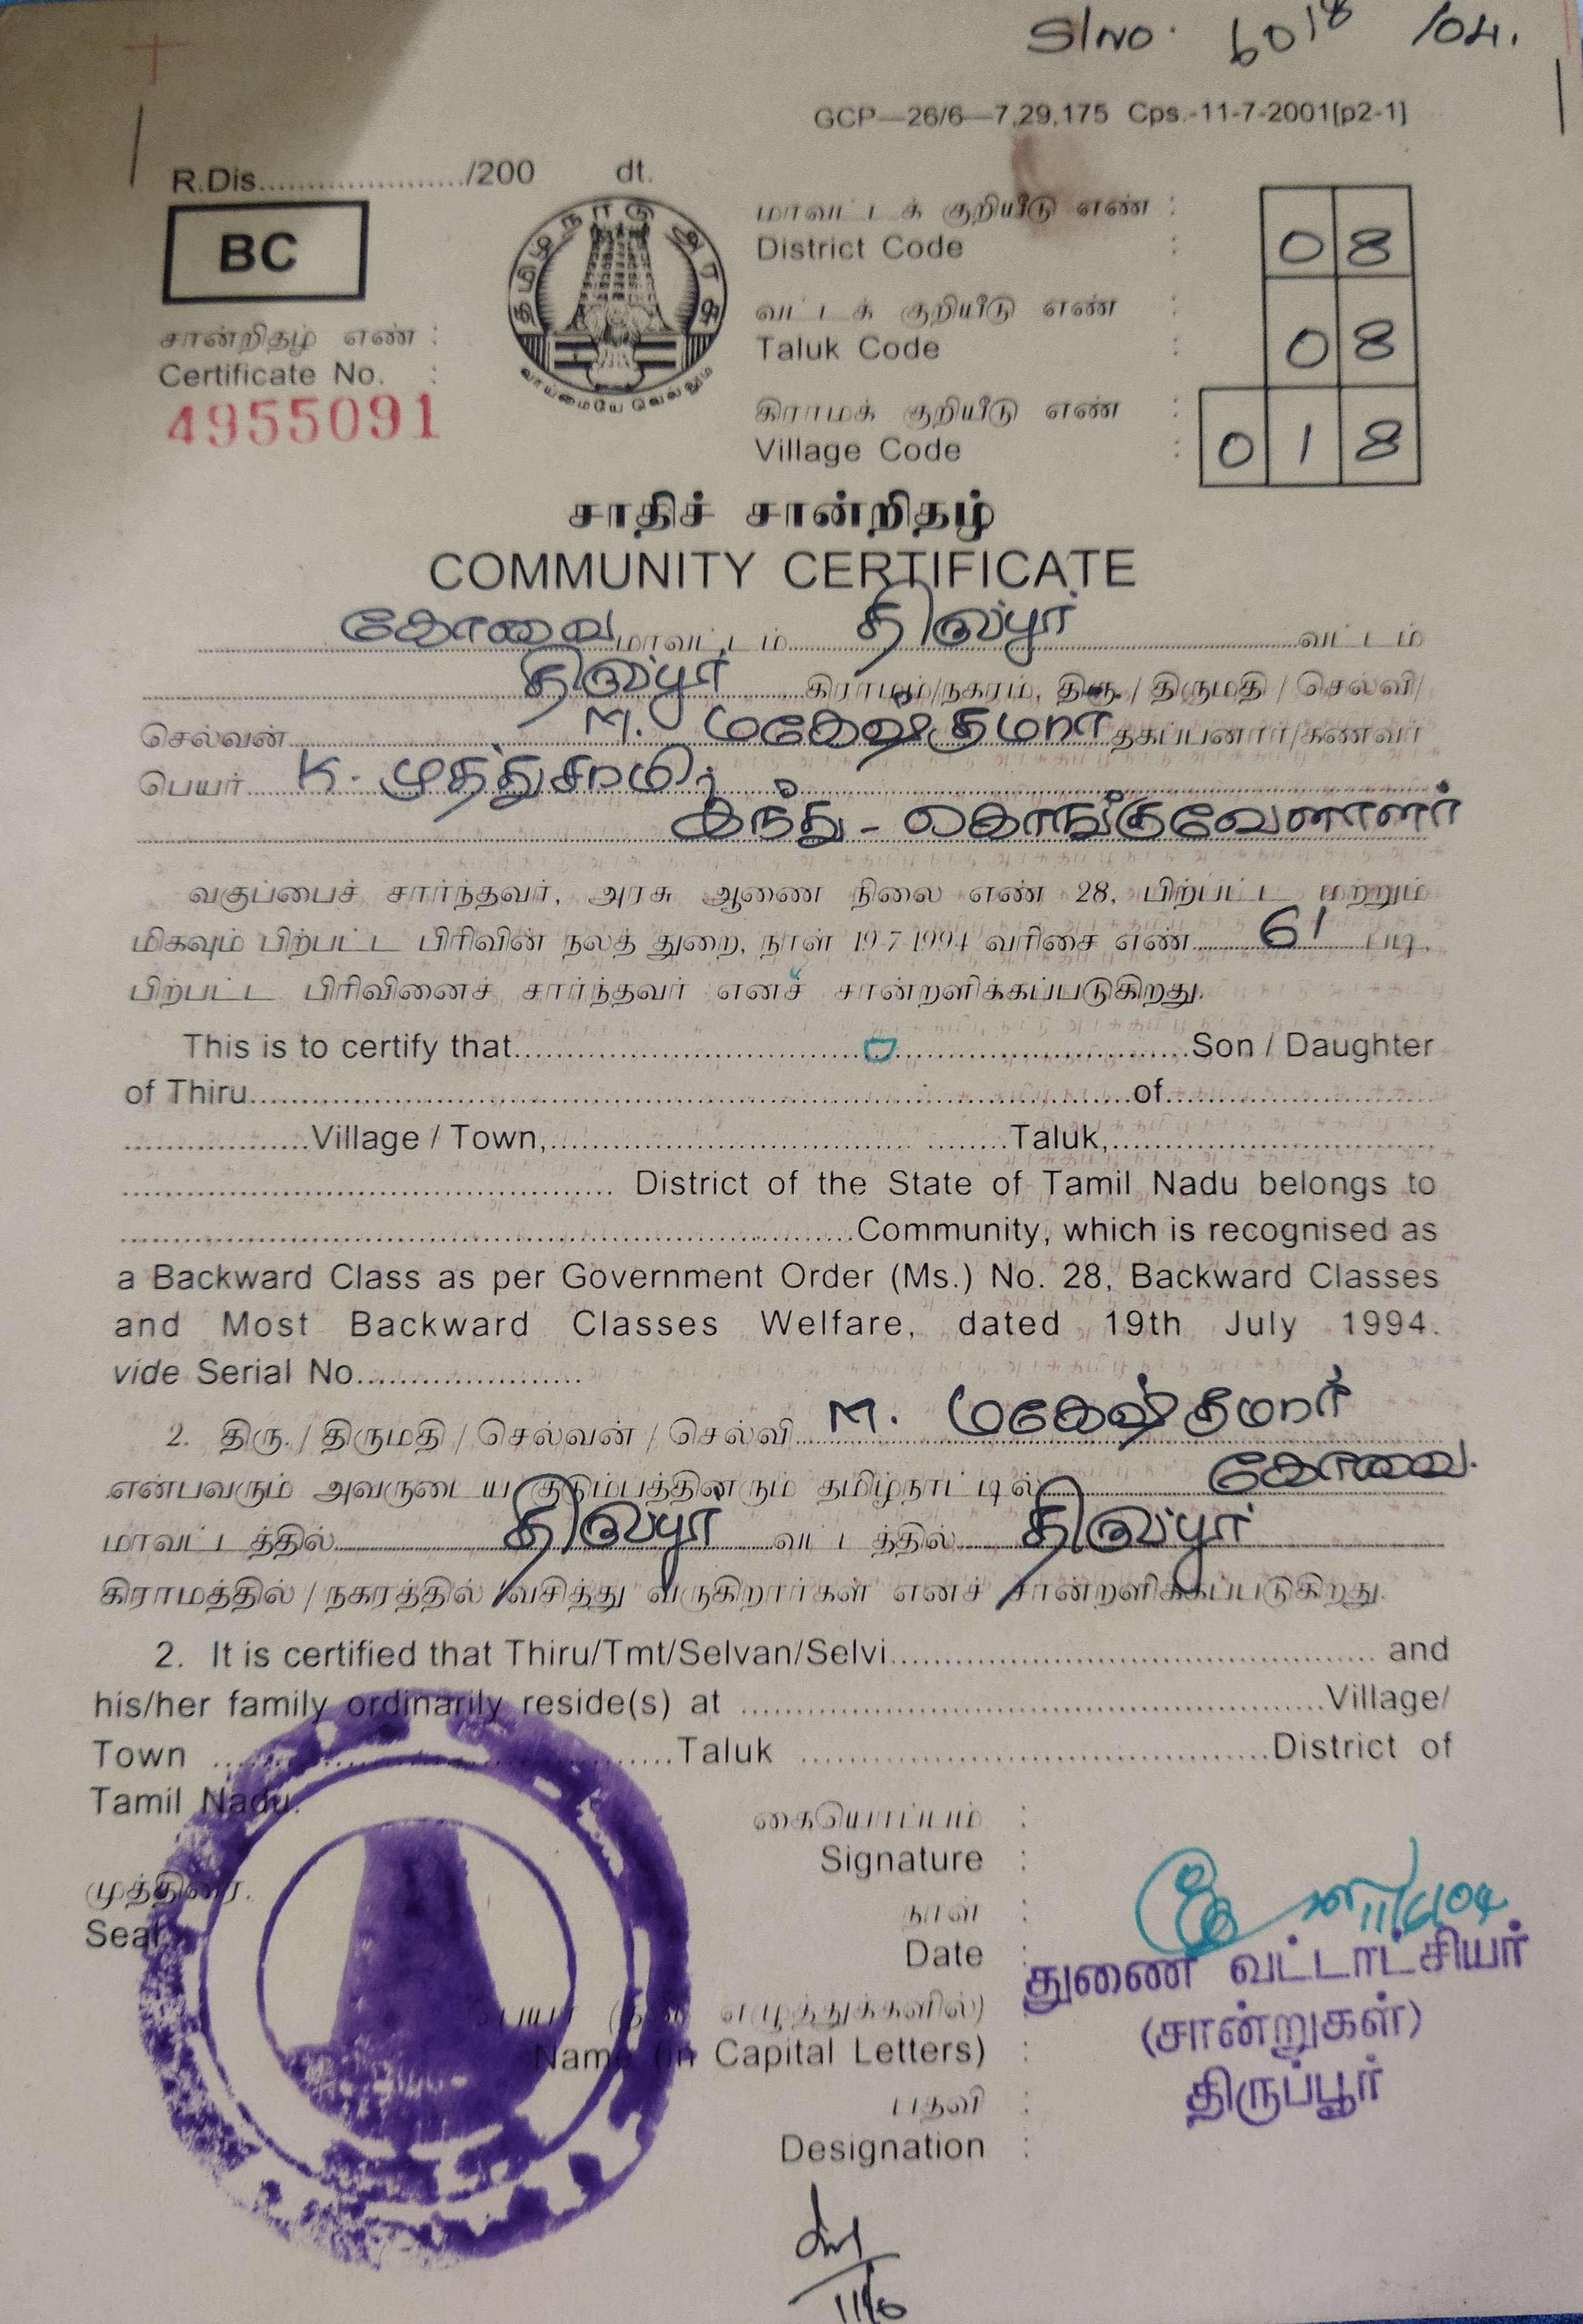 Sl No. 6018 /04.
GCP—26/6—7,29,175 Cps.-11-7-2001[p2-1]
R.Dis...................../200 dt.
BC
தமிழ்நாடு அரசு
வாய்மையே வெல்லும்
சான்றிதழ் எண் :
Certificate No. :
4955091
மாவட்டக் குறியீடு எண் :
District Code : 08
வட்டக் குறியீடு எண் :
Taluk Code : 08
கிராமக் குறியீடு எண் :
Village Code : 018
சாதிச் சான்றிதழ்
COMMUNITY CERTIFICATE
கோவை மாவட்டம் திருப்பூர் வட்டம்
திருப்பூர் கிராமம்/நகரம், திரு. / திருமதி / செல்வி/
செல்வன் M. மகேஷ்குமார் தகப்பனார்/கணவர்
பெயர் K. முத்துசாமி,
இந்து - கொங்குவேளாளர்
வகுப்பைச் சார்ந்தவர், அரசு ஆணை நிலை எண் 28, பிற்பட்ட மற்றும்
மிகவும் பிற்பட்ட பிரிவின் நலத் துறை, நாள் 19-7-1994 வரிசை எண் 61 படி,
பிற்பட்ட பிரிவினைச் சார்ந்தவர் எனச் சான்றளிக்கப்படுகிறது.
This is to certify that.................................................Son / Daughter
of Thiru.................................................of.........................
..................Village / Town,.................................Taluk,..............................
............................................... District of the State of Tamil Nadu belongs to
......................................................................Community, which is recognised as
a Backward Class as per Government Order (Ms.) No. 28, Backward Classes
and Most Backward Classes Welfare, dated 19th July 1994.
vide Serial No.....................
2. திரு. / திருமதி / செல்வன் / செல்வி M. மகேஷ்குமார்
என்பவரும் அவருடைய குடும்பத்தினரும் தமிழ்நாட்டில் கோவை.
மாவட்டத்தில் திருப்பூர் வட்டத்தில் திருப்பூர்
கிராமத்தில் / நகரத்தில் வசித்து வருகிறார்கள் எனச் சான்றளிக்கப்படுகிறது.
2. It is certified that Thiru/Tmt/Selvan/Selvi.............................................. and
his/her family ordinarily reside(s) at ........................................................Village/
Town ............................................Taluk ............................................District of
Tamil Nadu.
கையொப்பம் :
Signature :
முத்திரை.
Seal
நாள் : 11/6/04
Date :
துணை வட்டாட்சியர்
பெயர் (தனி எழுத்துக்களில்) :
(சான்றுகள்)
Name (in Capital Letters) :
திருப்பூர்
பதவி :
Designation :
11/6